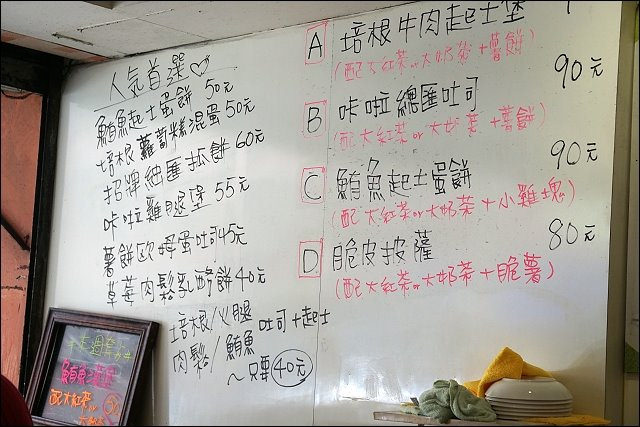 人氣首選♡
鮪魚起士蛋餅 50元
培根蘿蔔糕混蛋50元
招牌總匯抓餅60元
咔啦雞腿堡 55元
薯餅歐姆蛋吐司45元
草莓肉鬆乳酪餅40元
培根/火腿
肉鬆/鮪魚
吐司+起士
~只要40元
A 培根牛肉起士堡
(配大紅茶or大奶茶+薯餅)
90元
B 咔啦總匯吐司
(配大紅茶or大奶茶+薯餅)
90元
C 鮪魚起士蛋餅
(配大紅茶or大奶茶+小雞塊)
80元
D 脆皮披薩
(配大紅茶or大奶茶+脆薯)
鮪魚
配大紅茶or